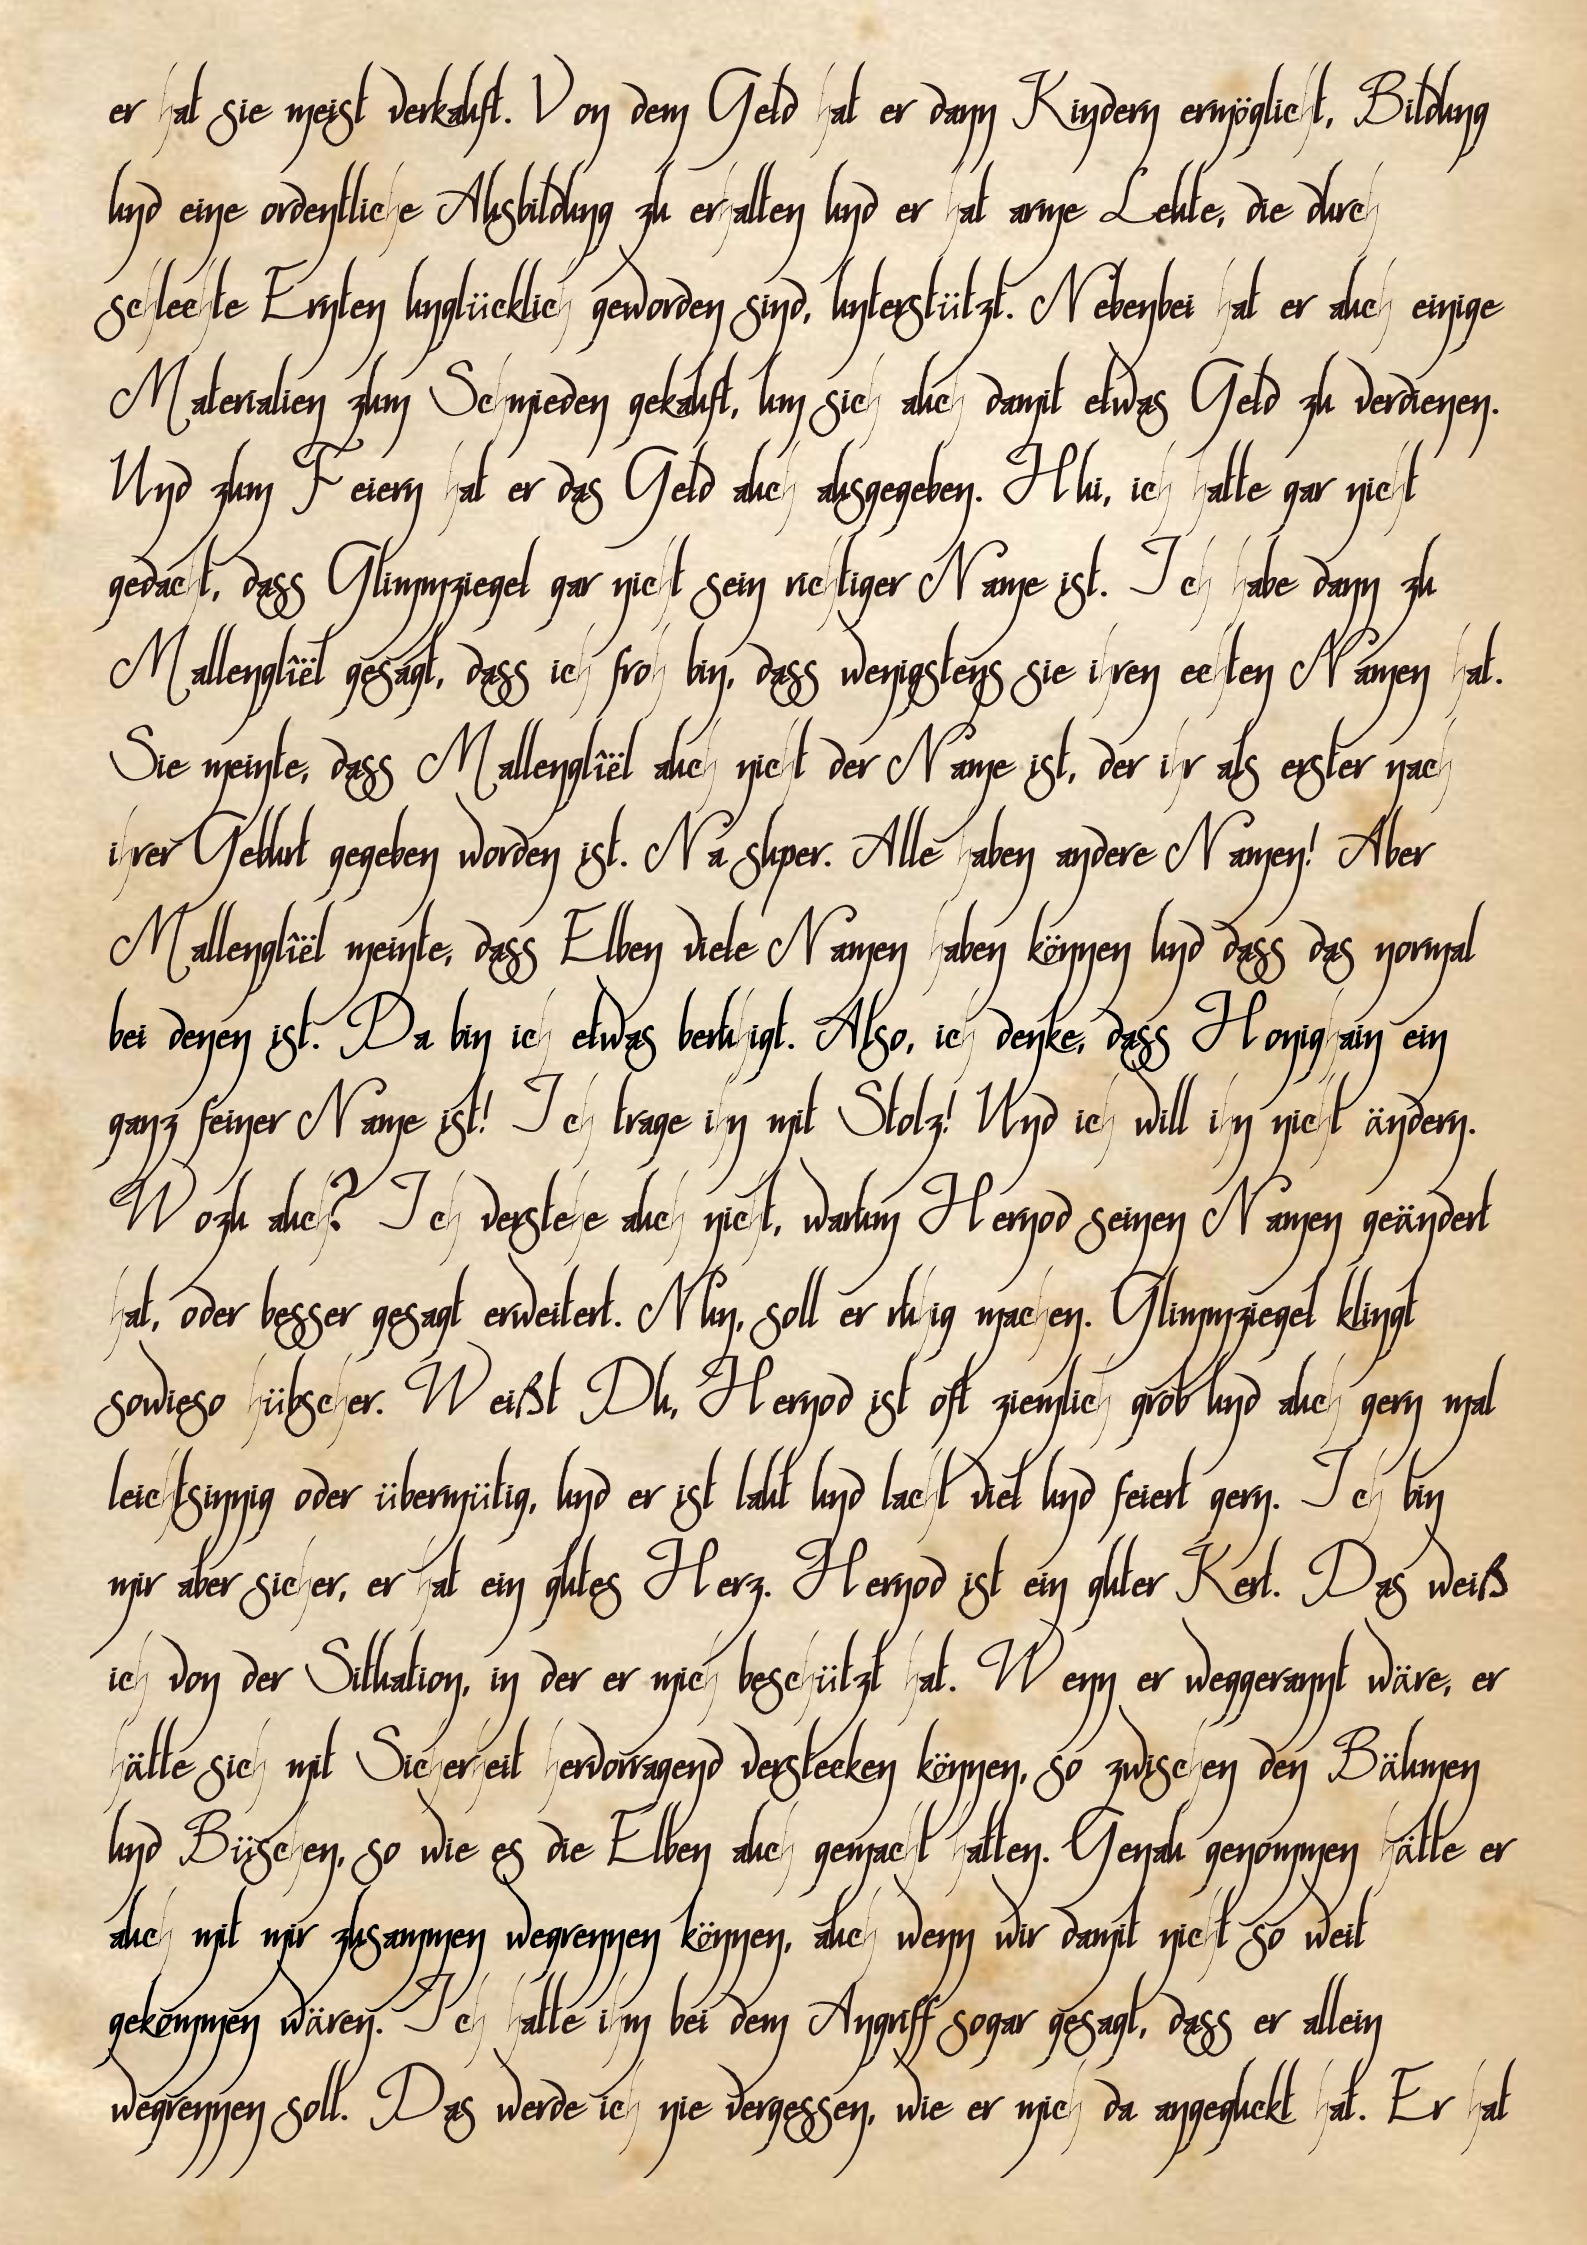 er hat sie meist verkauft. Von dem Geld hat er dann Kindern ermöglicht, Bildung
und eine ordentliche Ausbildung zu erhalten und er hat arme Leute, die durch
schlechte Ernten unglücklich geworden sind, unterstützt. Nebenbei hat er auch einige
Materialien zum Schmieden gekauft, um sich auch damit etwas Geld zu verdienen.
Und zum Feiern hat er das Geld auch ausgegeben. Hui, ich hatte gar nicht
gedacht, dass Glimmziegel gar nicht sein richtiger Name ist. Ich habe dann zu
Mallenglîël gesagt, dass ich froh bin, dass wenigstens sie ihren echten Namen hat.
Sie meinte, dass Mallenglîël auch nicht der Name ist, der ihr als erster nach
ihrer Geburt gegeben worden ist. Na super. Alle haben andere Namen! Aber
Mallenglîël meinte, dass Elben viele Namen haben können und dass das normal
bei denen ist. Da bin ich etwas beruhigt. Also, ich denke, dass Honighain ein
ganz feiner Name ist! Ich trage ihn mit Stolz! Und ich will ihn nicht ändern.
Wozu auch? Ich verstehe auch nicht, warum Hernod seinen Namen geändert
hat, oder besser gesagt erweitert. Nun, soll er ruhig machen. Glimmziegel klingt
sowieso hübscher. Weißt Du, Hernod ist oft ziemlich grob und auch gern mal
leichtsinnig oder übermütig, und er ist laut und lacht viel und feiert gern. Ich bin
mir aber sicher, er hat ein gutes Herz. Hernod ist ein guter Kerl. Das weiß
ich von der Situation, in der er mich beschützt hat. Wenn er weggerannt wäre, er
hätte sich mit Sicherheit hervorragend verstecken können, so zwischen den Bäumen
und Büschen, so wie es die Elben auch gemacht hatten. Genau genommen hätte er
auch mit mir zusammen wegrennen können, auch wenn wir damit nicht so weit
gekommen wären. Ich hatte ihm bei dem Angriff sogar gesagt, dass er allein
wegrennen soll. Das werde ich nie vergessen, wie er mich da angeguckt hat. Er hat